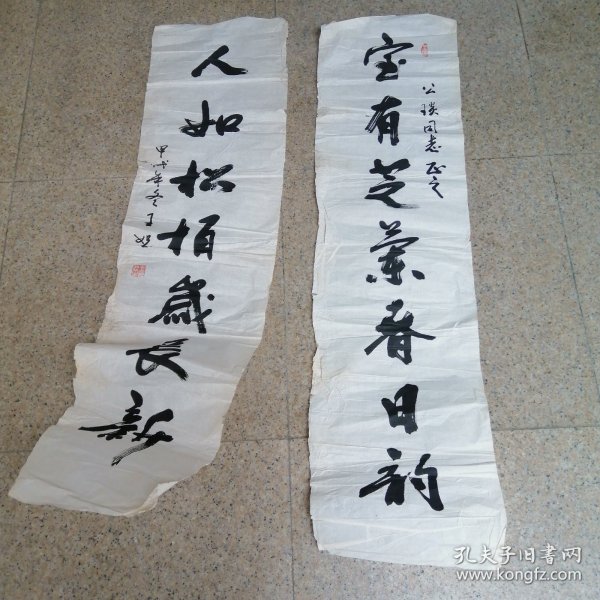 室有芝蘭春日韵
公璞同志正之
人如松柏歲長
甲戌年冬
孔夫子旧书网
www.kongfz.com